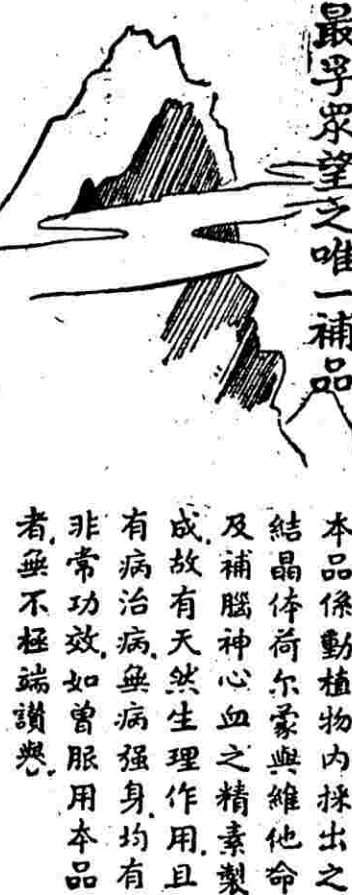 最孚眾望之唯一補品
本品係動植物內採出之
結晶体荷尔蒙與維他命
及補腦神心血之精素製
成.故有天然生理作用.且
有病治病.無病强身.均有
非常功效.如曾服用本品
者.無不極端讃興.